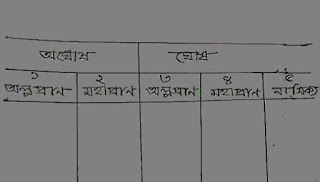 অঘোষ ঘোষ
১ ২ ৩ ৪ ৫
অল্পপ্রাণ মহাপ্রাণ অল্পপ্রাণ মহাপ্রাণ নাসিক্য